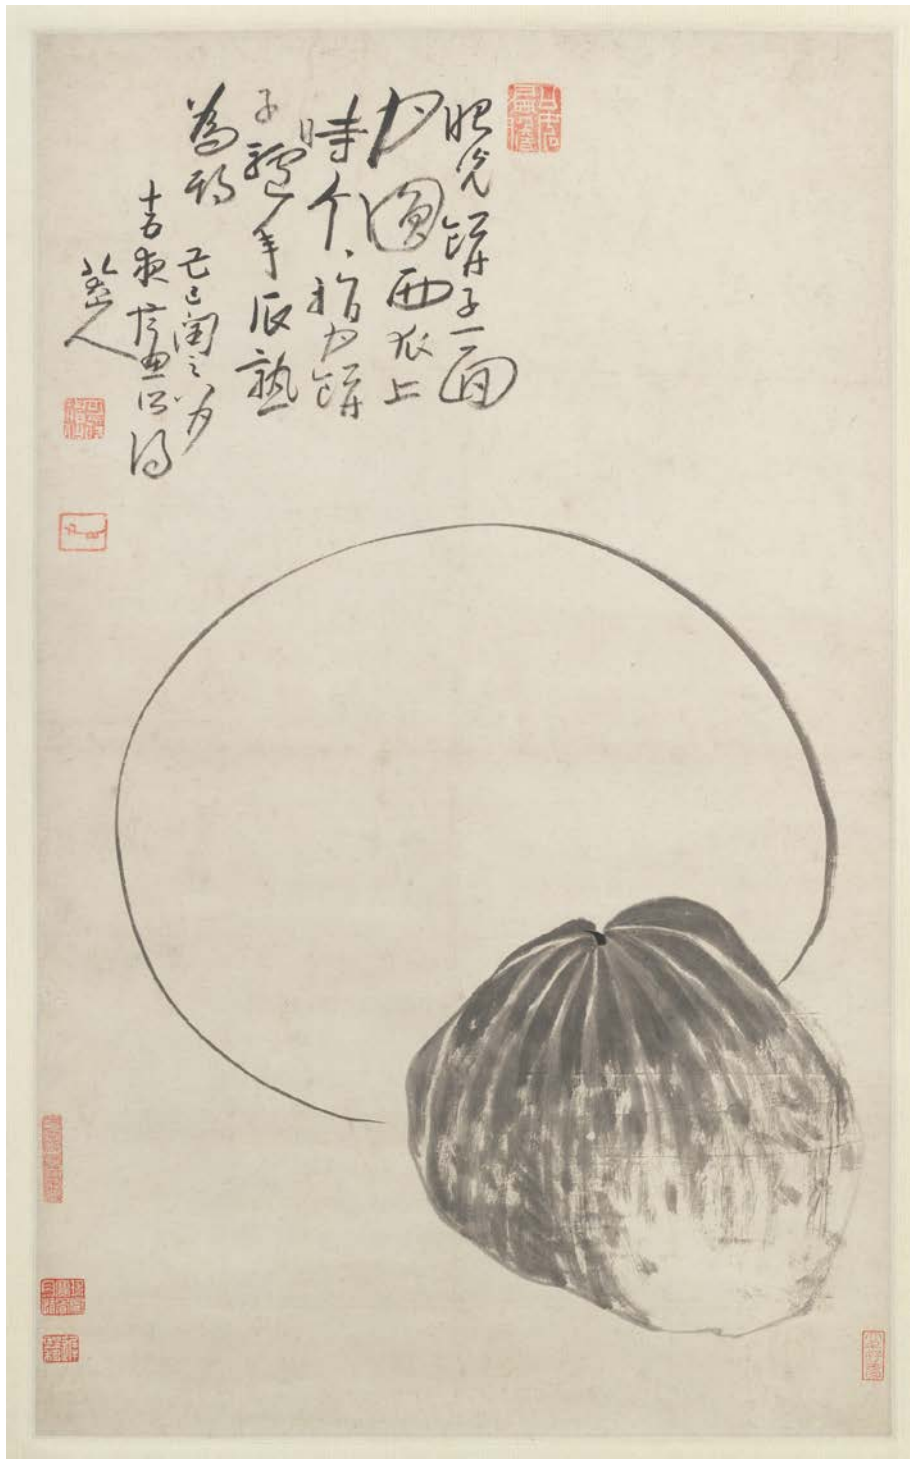 眼光餅子一面
月圓西瓜上
時个、指月餅
子驢年瓜熟
為期
己巳閏之八月
十五夜畫所得
八大山人
可得神仙